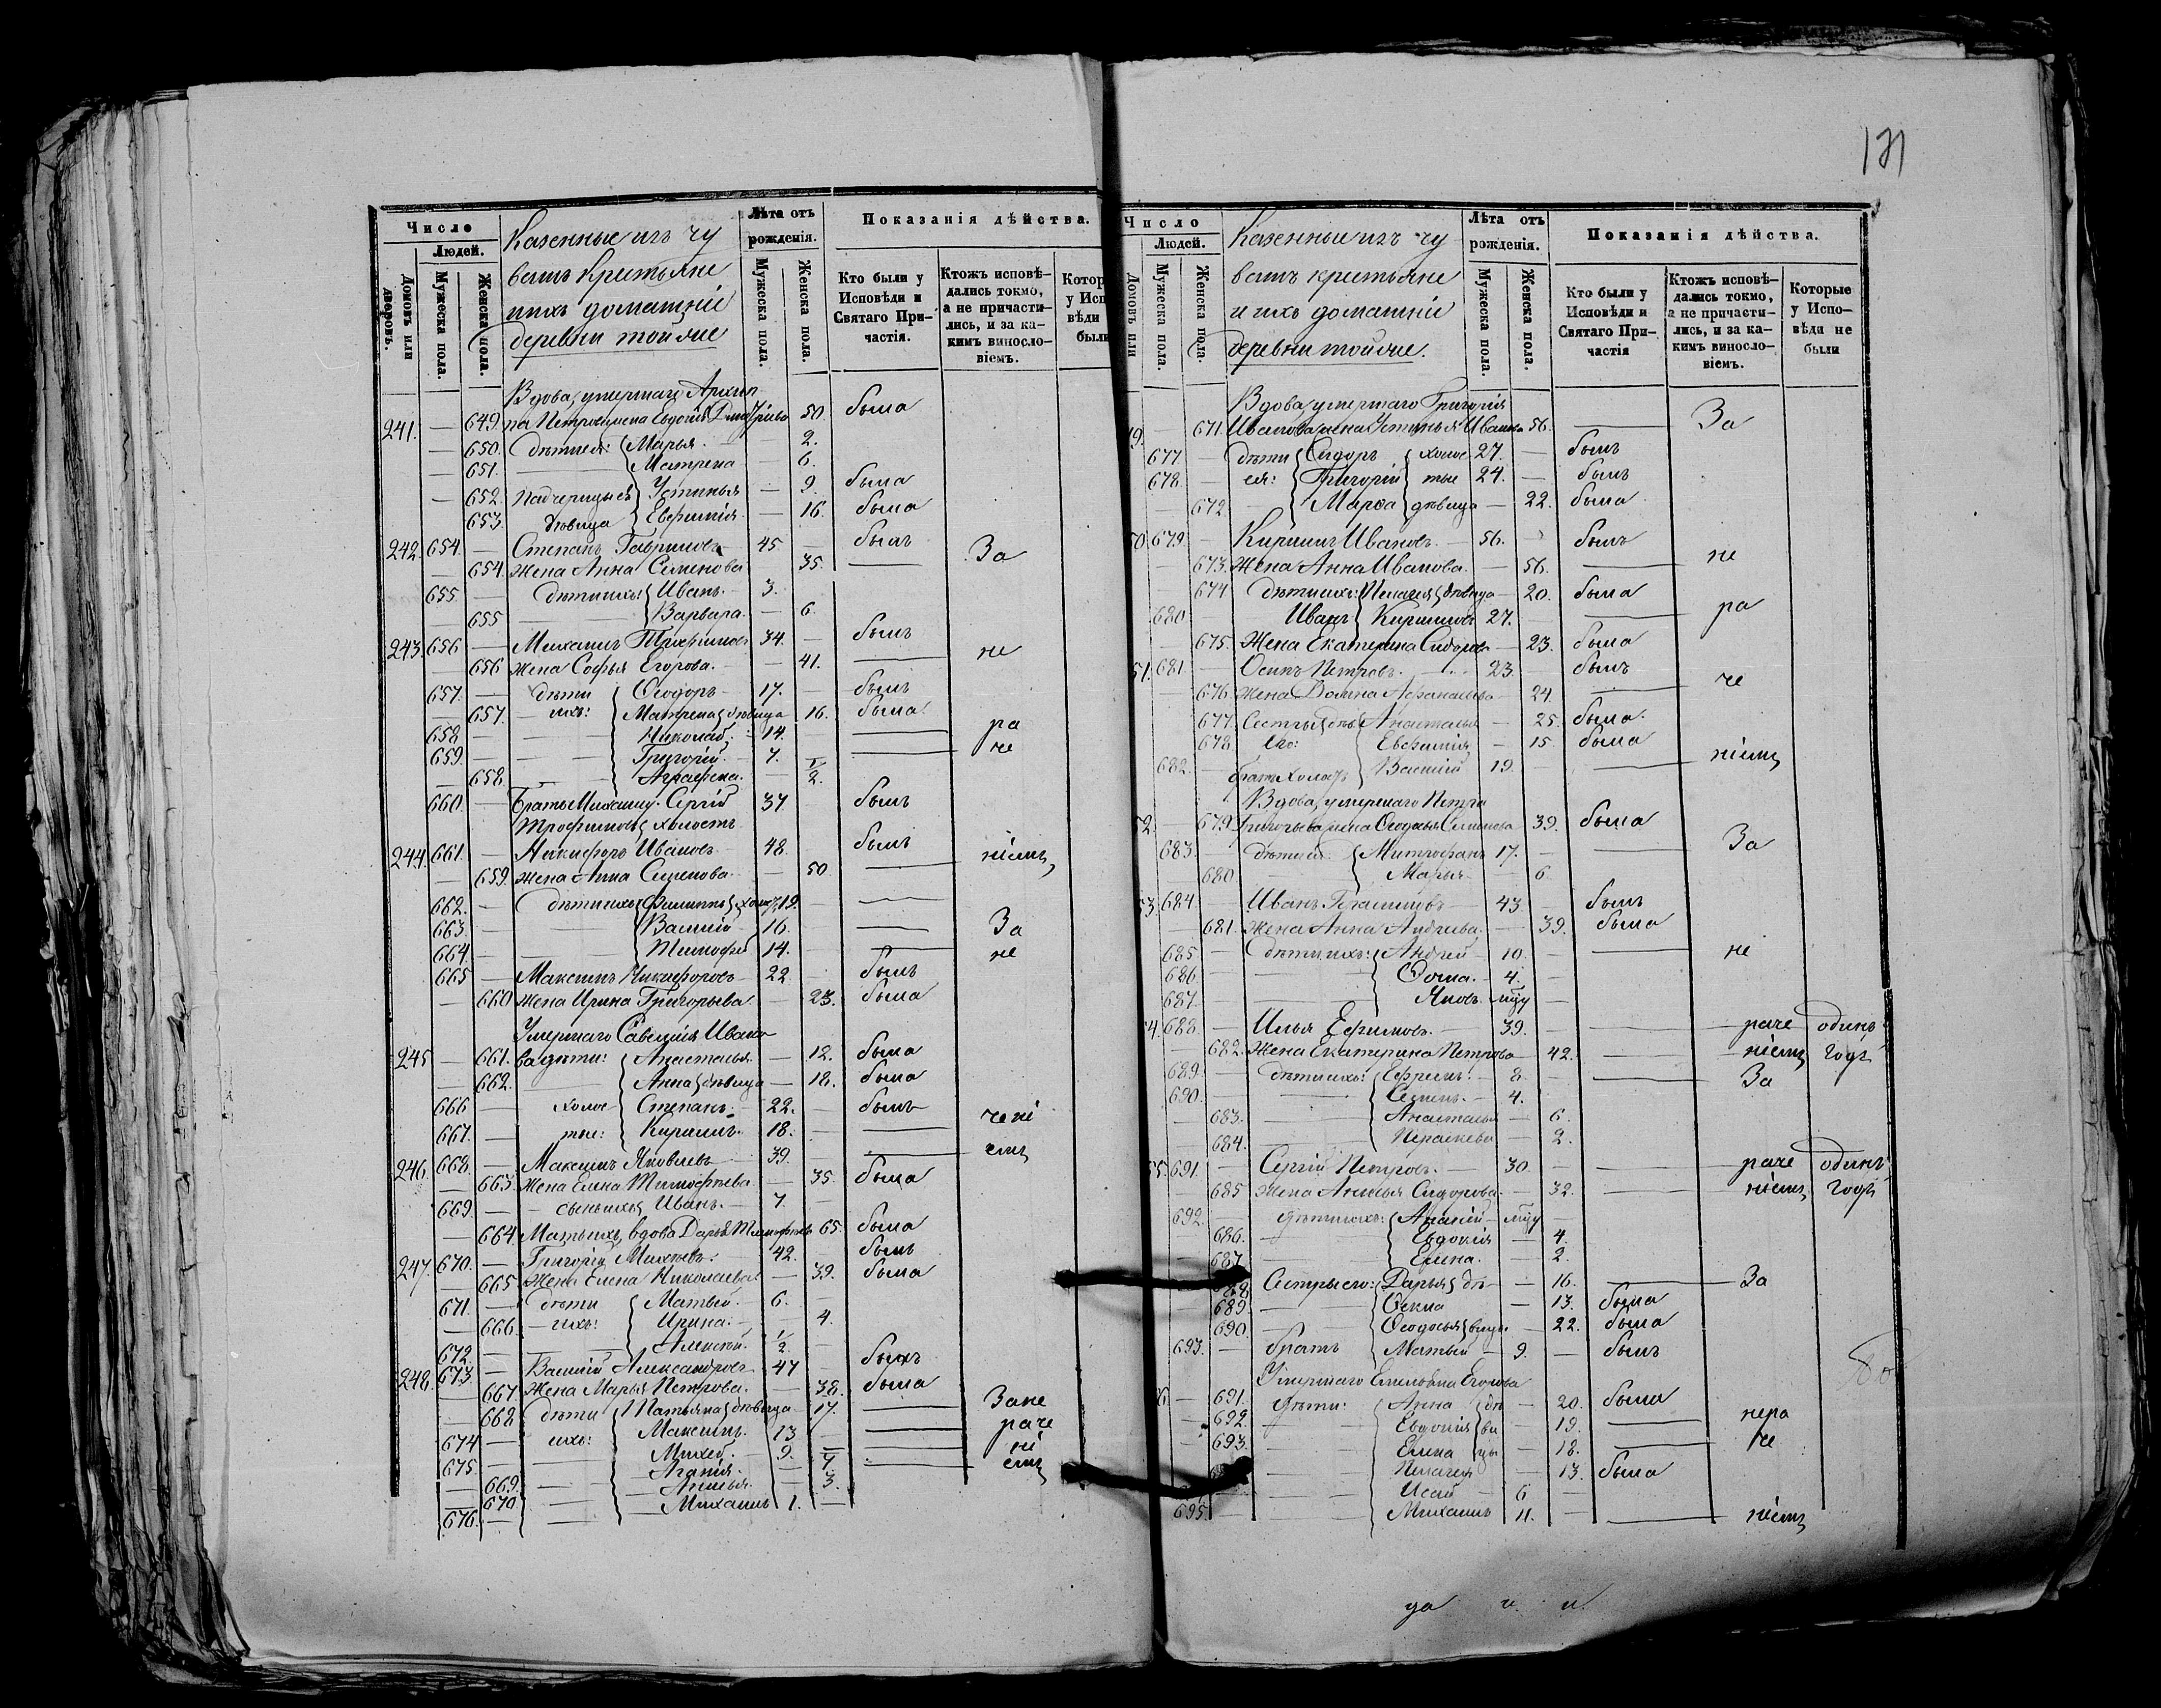 131
Число
Людей.
Домовъ или дворовъ.
Мужеска пола.
Женска пола.
Казенные изъ чу
вашъ крестьяне
и ихъ домашніи
деревни тойже
Лѣта отъ рожденія.
Мужеска пола.
Женска пола.
Показанія дѣйства.
Кто были у Исповѣди и Святаго Причастія.
Ктожъ исповѣдались токмо, а не причастились, и за какимъ винословіемъ.
Котор у Исп вѣди были
Вдова, умершаго Архип
241. — 649. па Петрова жена Евдокія Дмитріева 50. была
— 650. дѣти ея: Марья. — 2.
— 651. — Матрена — 6.
— 652. Падчерицы ея Устинья — 9. была
653. дѣвица Евфимія. — 16. была
242. 654. — Степанъ Гавриловъ 45 — былъ
— 654. Жена Анна Семенова — 35. — За
655 — дѣти ихъ: Иванъ. — 3.
— 655 — Варвара. — 6.
243. 656 — Михаилъ Трофимовъ 34. — былъ
— 656 Жена Софья Егорова. — 41. — не
657. — дѣти Ѳеодоръ 17. — былъ
— 657. — ихъ: Матрена дѣвица 16. была.
658 — — Николай. 14. — ра
659. — — Григорій. 7. — че
— 658. — Аграфена. — 2.
660. — Братъ Михаилу Сергій 37 — былъ
Трофимовъ холостъ
244. 661. — Никифоръ Ивановъ 48. былъ
— 659. Жена Анна Семенова. — 50. — ніемъ
662. — дѣти ихъ Филиппъ холос. 19. — —
663. — — Василій 16. — — За
664. — — Тимофей 14. — — не
665 — Максимъ Никифоровъ 22. былъ
— 660 Жена Ирина Григорьева — 23. была
Умершаго Савелія Ивано
245 — 661. ва дѣти: Анастасья. — 12. была
— 662. — Анна дѣвица — 18. была
666 — холос Степанъ. 22. — былъ
667. — тые: Кирилъ. 18. — — чені
246. 668. — Максимъ Яковлевъ 39. — — емъ
— 663. Жена Елена Тимофѣева. — 35. была
669. — сынъ ихъ Иванъ. — 7.
— 664. Мать ихъ, вдова Дарья Тимофѣев 65. была
247. 670. — Григорій Михѣевъ. 42. — былъ
— 665 Жена Елена Николаева. — 39. была
671. — Дѣти Матвей. — 6. —
— 666. — ихъ: Ирина. — 4.
672. — — Алексѣй. 1/2. —
248. 673. — Василій Александровъ 47 былъ
— 667. Жена Марья Петрова. — 38. была
— 668 дѣти Татьяна дѣвица — 17. — Зане
674. — ихъ: Максимъ. 13 — — раче
675. — — Михей. — 9. — — ні
— 669. — Агапія. — 7. — емъ
— 670. — Анисья. — 3.
676. — — Михаилъ 1. —
Число
Людей.
Домовъ или
Мужеска пола.
Женска пола.
Казенные изъ чу
вашъ крестьяне
и ихъ домашніи
деревни тойже.
Лѣта отъ рожденія.
Мужеска пола.
Женска пола.
Показанія дѣйства.
Кто были у Исповѣди и Святаго Причастія
Ктожъ исповѣдались токмо, а не причастились, и за какимъ винословіемъ.
Которые у Исповѣди не были
Вдова, умершаго Григорія
9. — 671. Иванова жена Устинья Иванова 56. — За
677 — дѣти Сидоръ холос 27. — былъ
678. — ея: Григорій тые 24. — былъ
672. — Марѳа дѣвица — 22. была
50 679. — Кирилъ Ивановъ. — 56. былъ
— 673. Жена Анна Иванова. — 56. — не
674 дѣти ихъ: Пелагея дѣвица — 20. была
680 Иванъ Кириловъ 27. — — ра
675. Жена Екатерина Сидорова — 23. была
51. 681. — Осипъ Петровъ. — 23. — былъ
676. Жена Афанасьева — 24. — че
677. Сестры дѣв Анастасья — 25. была.
678. его: Евфимія — 15 была
682. — братъ холостъ Василій 19. — — ніемъ
Вдова, умершаго Петра
52. — 679. Григорьева жена Ѳеодосья Семенова 39. была
683. — дѣти ея: Митрофанъ 17. — — За
680 — Марья — 6.
53. 684. Иванъ Герасимовъ — 43 — былъ
— 681. Жена Анна Андреева. — 39. была
685 — дѣти ихъ: Андрей — 10. — — не
686 — Ѳома. — 4. —
687. — Яковъ —
54. 688. — Илья Ефимовъ. — 39. — — раче одинъ
— 682. Жена Екатерина Петрова — 42. — ніемъ годъ
689. — дѣти ихъ: Ефремъ. — 8 — — За
690. — Семенъ. — 4.
— 683. — Анастасья — 6.
— 684. — Параскева — 2.
55. 691. — Сергій Петровъ. — 30. — — раче одинъ
— 685 Жена Анисья Сидорова. — 32. — ніемъ годъ
692. — дѣти ихъ: —
— 686. — Евдокія — 4.
687. — Елена. — 2.
688 Сестры его: Дарья дѣ — 16. — За
689. — Ѳекла — 13. была
690. — Ѳеодосья вицы — 22. была
693. — братъ Матвей — 9. — былъ
Умершаго Емельяна Егорова
6. — 691. дѣти: Анна дѣ — 20. была
— 692. — Евдокія ви — 19. — нера
— 693. — Елена цы — 18. — че
— Пелагея — 13. была
— Исай — 6 —
695. — Михаилъ 11. — — ніемъ
80
да и и.